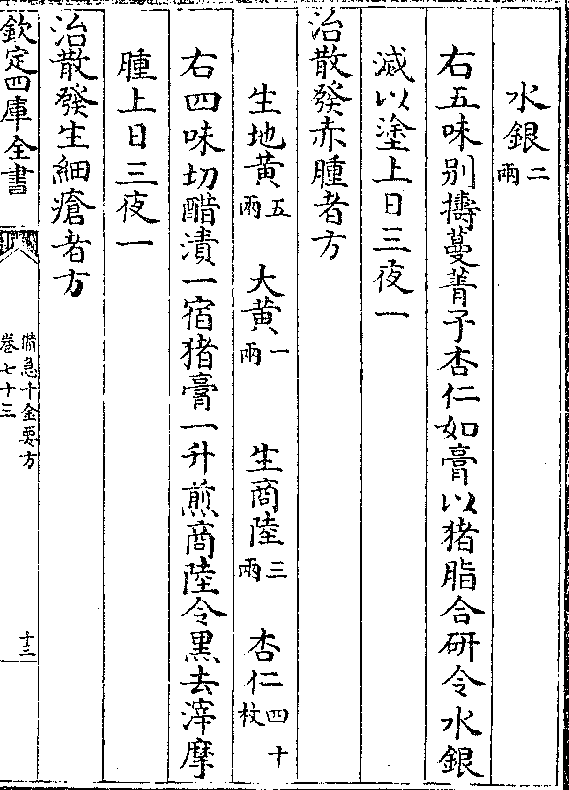 水銀二兩
右五味别擣蔓菁子杏仁如膏以猪脂合研令水銀
滅以塗上日三夜一
治散發赤腫者方
生地黄五兩 大黄一兩 生商陸三兩 杏仁四十枚
右四味切醋漬一宿猪膏一升煎商陸令黒去滓摩
腫上日三夜一
治散發生細瘡者方
欽定四庫全書
備急千金要方
卷七十三
十三